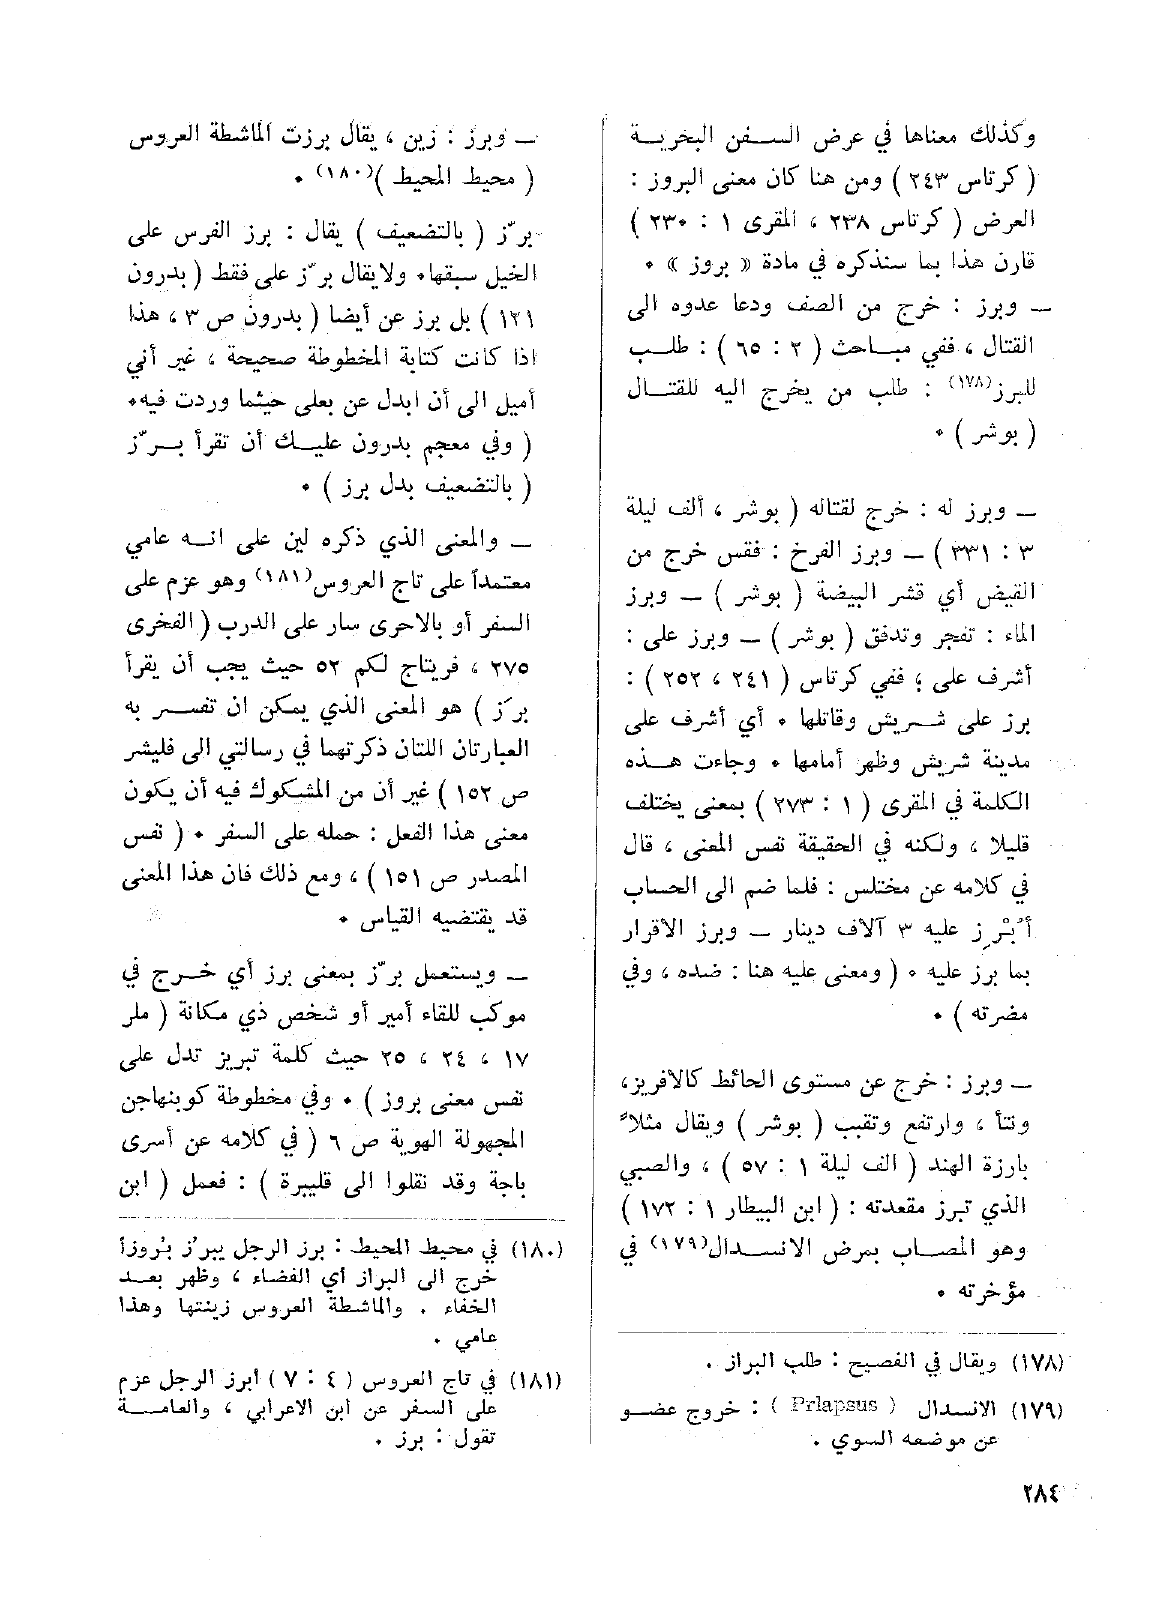 وكذلك معناها في عرض الســفن البحريــة
( كرتاس ٢٤٣ ) ومن هنا كان معنى البروز :
العرض ( كرتاس ٢٣٨ ، المقرى ١ : ٢٣٠ )
قارن هذا بما سنذكره في مادة « بروز » ٠
ــ وبرز : خرج من الصف ودعا عدوه الى
القتال ، ففي مبـاحث ( ٢ : ٦٥ ) : طلــب
للبرز(١٧٨) : طلب من يخرج اليه للقتــال
( بوشر ) ٠
ــ وبرز له : خرج لقتاله ( بوشر ، ألف ليلة
٣ : ٣٣١ ) ــ وبرز الفرخ : فقس خرج من
القيض أي قشر البيضة ( بوشر ) ــ وبرز
الماء : تفجر وتدفق ( بوشر ) ــ وبرز على :
أشرف على ؛ ففي كرتاس ( ٢٤١ ، ٢٥٢ ) :
برز على شــريش وقاتلها ٠ أي أشرف على
مدينة شريش وظهر أمامها ٠ وجاءت هــذه
الكلمة في المقرى ( ١ : ٢٧٣ ) بمعنى يختلف
قليلا ، ولكنه في الحقيقة نفس المعنى ، قال
في كلامه عن مختلس : فلما ضم الى الحساب
أُبْرِز عليه ٣ آلاف دينار ــ وبرز الاقرار
بما برز عليه ٠ ( ومعنى عليه هنا : ضده ، وفي
مضرته ) ٠
ــ وبرز : خرج عن مستوى الحائط كالافريز،
ونتأ ، وارتفع وتقبب ( بوشر ) ويقال مثلاً
بارزة الهند ( الف ليلة ١ : ٥٧ ) ، والصبي
الذي تبرز مقعدته : ( ابن البيطار ١ : ١٧٢ )
وهو المصـاب بمرض الانسـدال(١٧٩) في
مؤخرته ٠
(١٧٨) ويقال في الفصيح : طلب البراز .
(١٧٩) الانسـدال ( Prlapsus ) : خروج عضــو
عن موضعه السوي .
ــ وبرز : زين ، يقال برزت الماشطة العروس
( محيط المحيط )(١٨٠) ٠
برّز ( بالتضعيف ) يقال : برز الفرس على
الخيل سبقها٠ ولايقال برّز على فقط ( بدرون
١٢١ ) بل برز عن أيضا ( بدرون ص ٣ ، هذا
اذا كانت كتابة المخطوطة صحيحة ، غير أني
أميل الى أن ابدل عن بعلى حيثما وردت فيه٠
( وفي معجم بدرون عليــك أن تقرأ بــرّز
( بالتضعيف بدل برز ) ٠
ــ والمعنى الذي ذكره لين على انــه عامي
معتمداً على تاج العروس(١٨١) وهو عزم على
السفر أو بالاحرى سار على الدرب ( الفخرى
٢٧٥ ، فريتاج لكم ٥٢ حيث يجب أن يقرأ
برَّز ) هو المعنى الذي يمكن ان تفســر به
العبارتان اللتان ذكرتهما في رسالتي الى فليشر
ص ١٥٢ ) غير أن من المشكوك فيه أن يكون
معنى هذا الفعل : حمله على السفر ٠ ( نفس
المصدر ص ١٥١ ) ، ومع ذلك فان هذا المعنى
قد يقتضيه القياس ٠
ــ ويستعمل برّز بمعنى برز أي خــرج في
موكب للقاء أمير أو شخص ذي مكانة ( ملر
١٧ ، ٢٤ ، ٢٥ حيث كلمة تبريز تدل على
نفس معنى بروز ) ٠ وفي مخطوطة كوبنهاجن
المجهولة الهوية ص ٦ ( في كلامه عن أسرى
باجة وقد نقلوا الى قليبرة ) : فعمل ( ابن
(١٨٠) في محيط المحيط : برز الرجل يبرُز بُروزاً
خرج الى البراز أي الفضاء ، وظهر بعــد
الخفاء . والماشطة العروس زينتها وهذا
عامي .
(١٨١) في تاج العروس ( ٤ : ٧ ) ابرز الرجل عزم
على السفر عن ابن الاعرابي ، والعامــة
تقول : برز .
٢٨٤